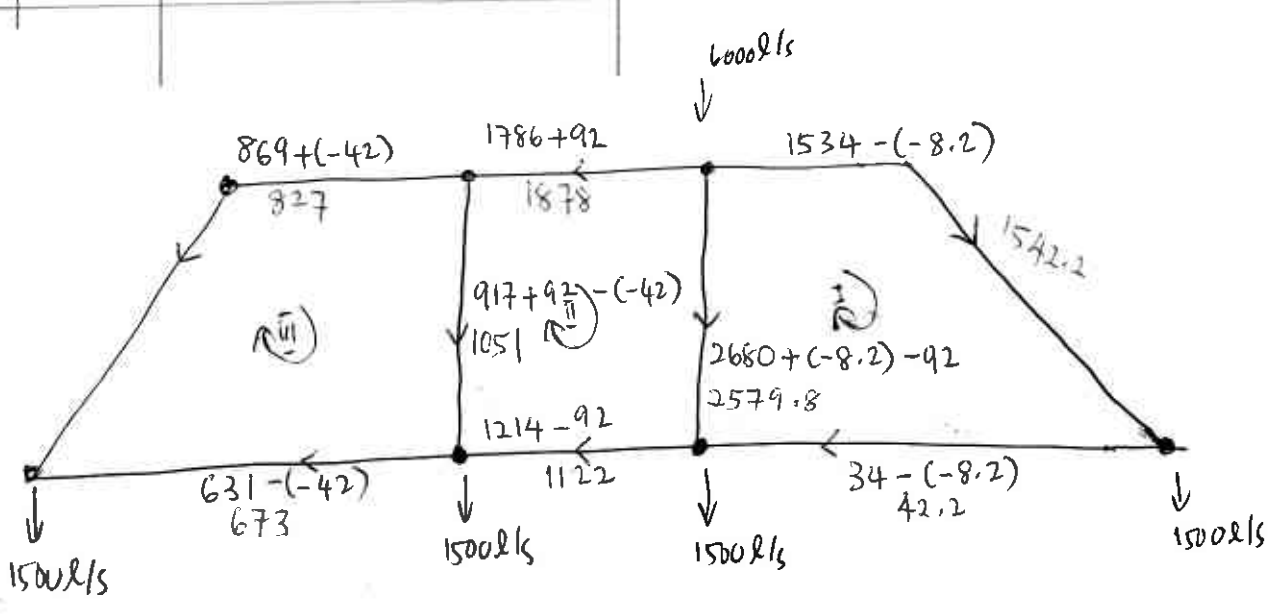 6000l/s
869+(-42)
827
1786+92
1878
1534-(-8.2)
1542.2
917+92-(-42)
1051
III
II
I
2680+(-8.2)-92
2579.8
1214-92
1122
631-(-42)
673
34-(-8.2)
42.2
1500l/s
1500l/s
1500l/s
1500l/s